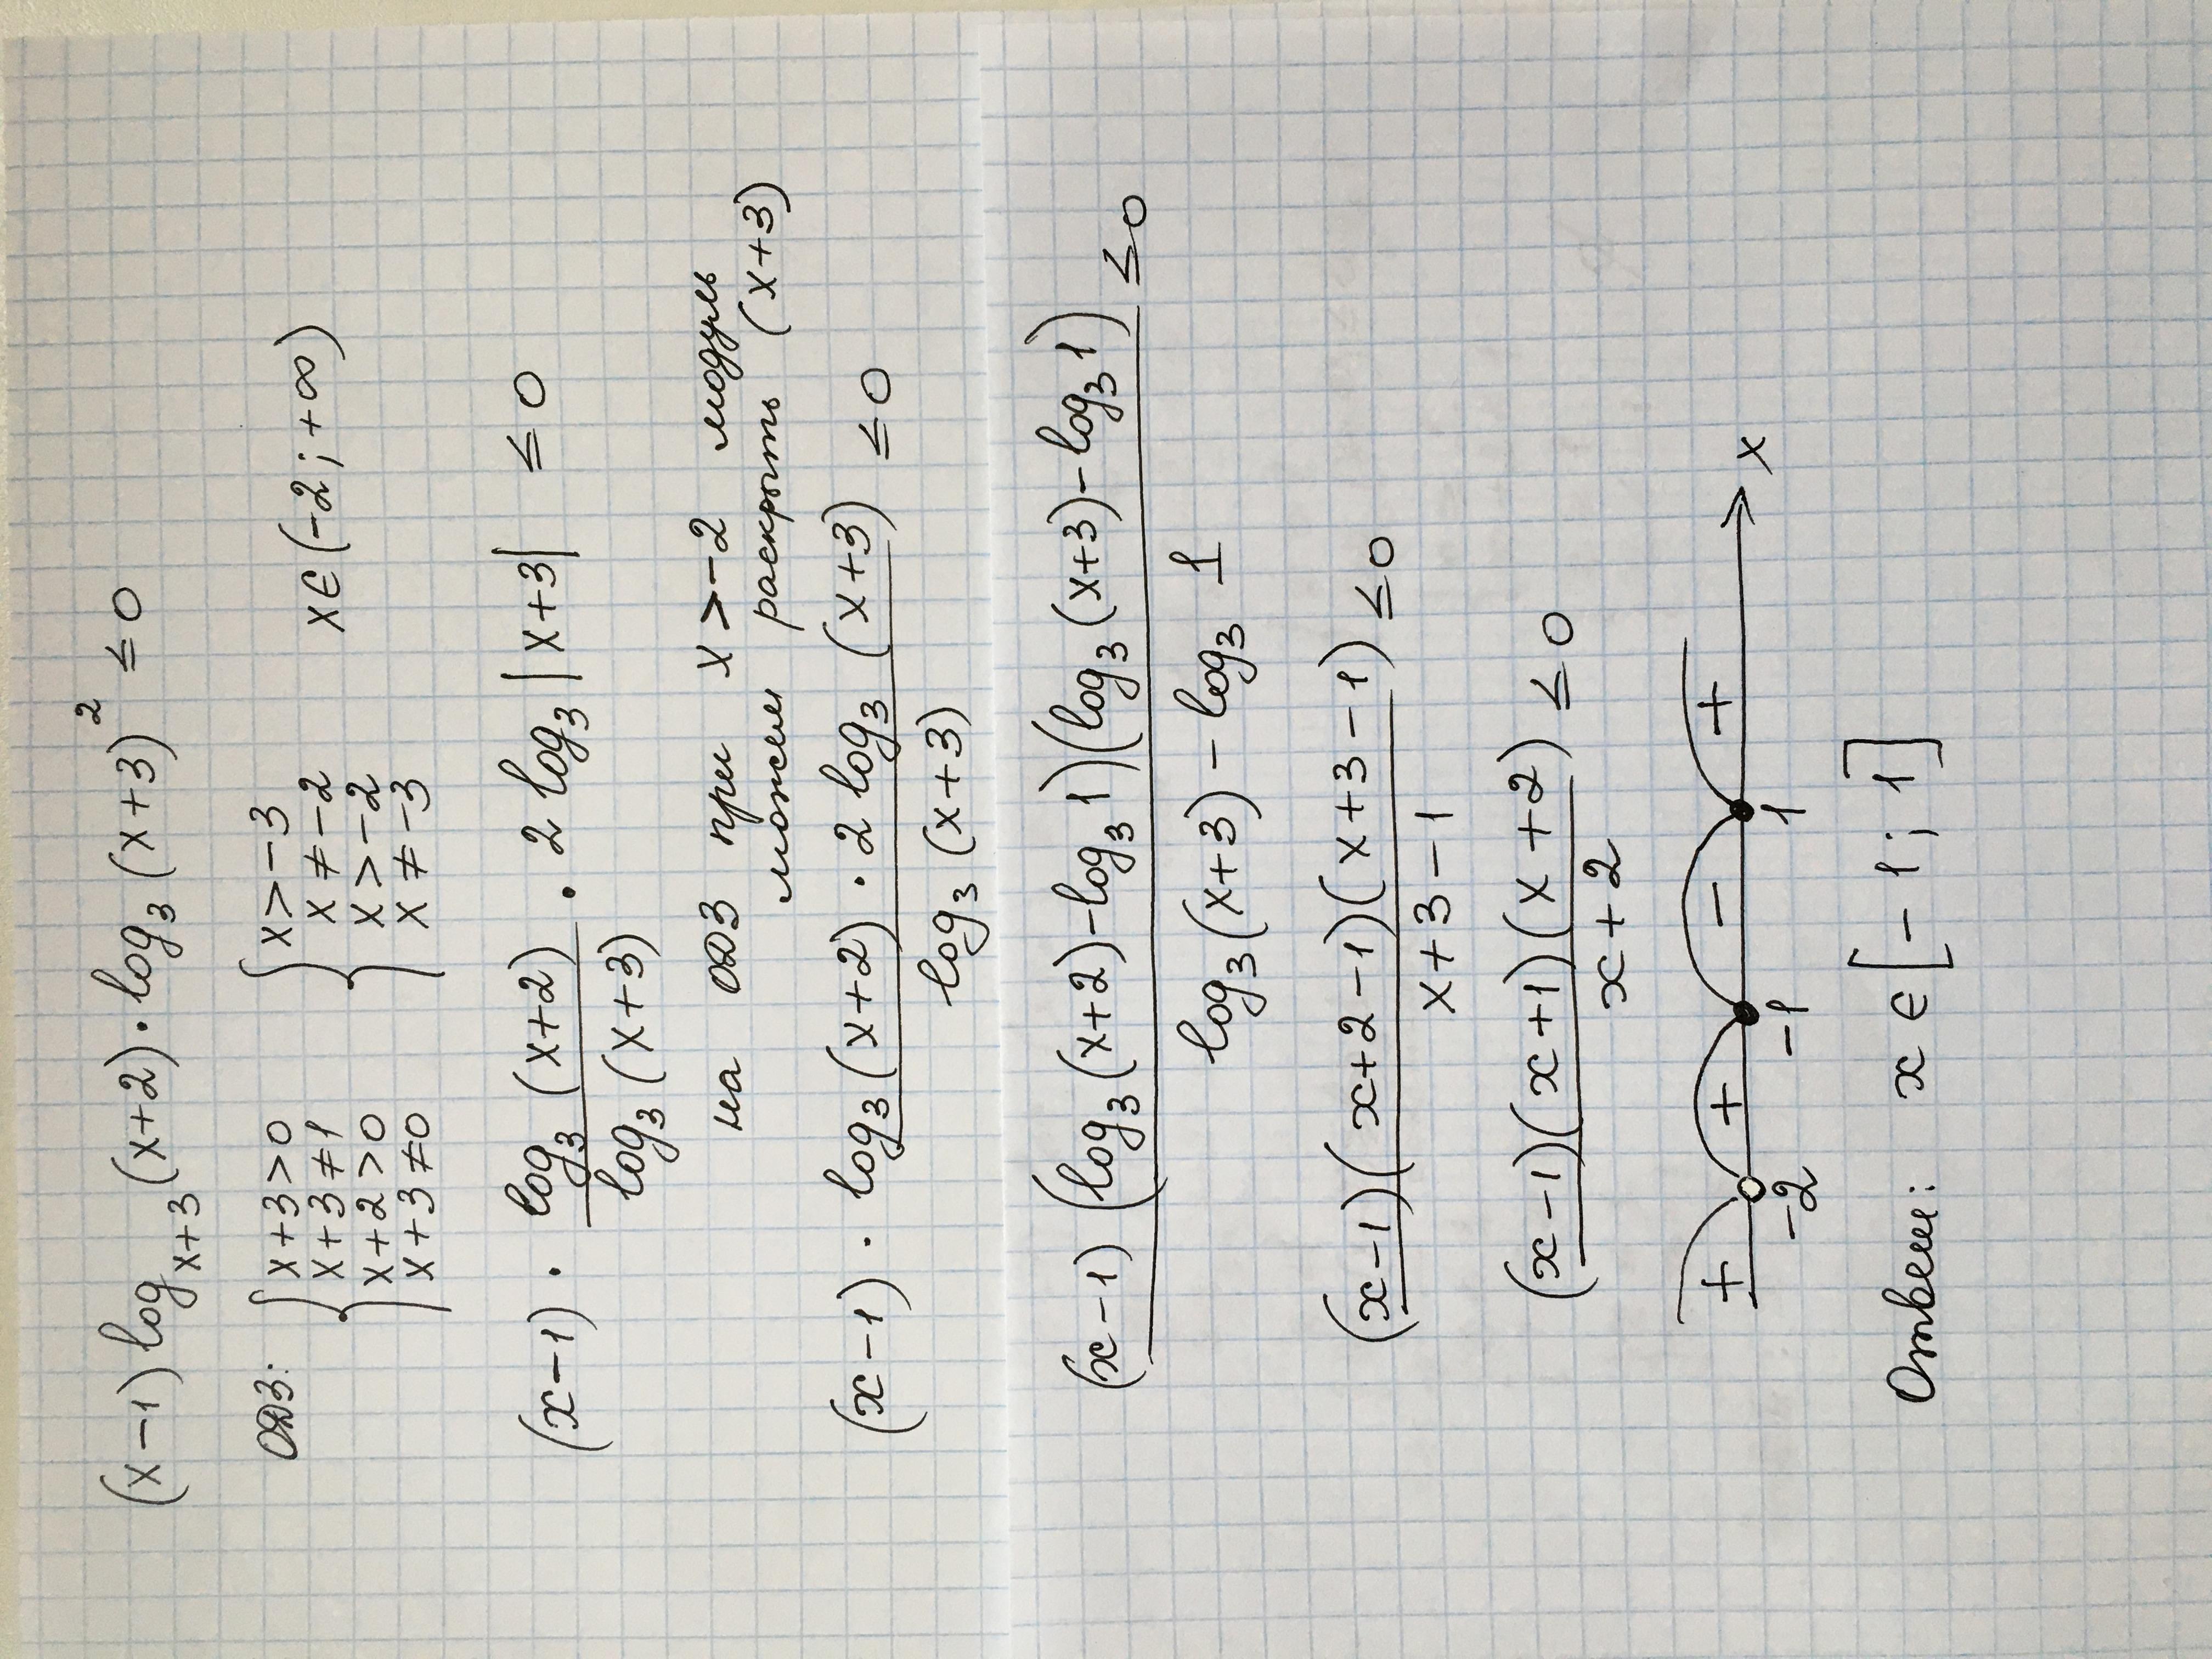 (x-1) log_{x+3}(x+2) · log_3(x+3)^2 ≤ 0
ОДЗ: { x+3>0 { x>-3
x+3≠1 x≠-2 x∈(-2;+∞)
x+2>0 x>-2
x+3≠0 x≠-3
(x-1) · log_3(x+2) / log_3(x+3) · 2 log_3|x+3| ≤ 0
на ОДЗ при x>-2 модуль
можем раскрыть (x+3)
(x-1) · log_3(x+2) · 2 log_3(x+3) ≤ 0
log_3(x+3)
(x-1)(log_3(x+2)-log_3 1)(log_3(x+3)-log_3 1) ≤ 0
log_3(x+3) - log_3 1
(x-1)(x+2-1)(x+3-1) ≤ 0
x+3-1
(x-1)(x+1)(x+2) ≤ 0
x+2
+ + - + x
-2 -1 1
Ответ: x∈[-1;1]